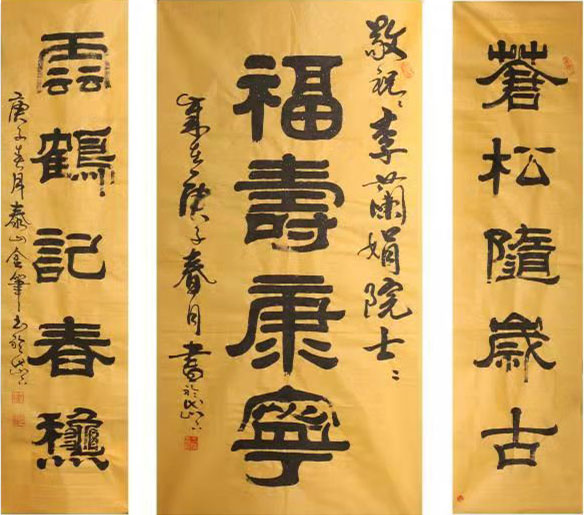 蒼松隨歲古
敬祝李蘭娟院士
福壽康寧
歲在庚子春月書於岱下
雲鶴記春龝
庚子春月泰山金筆書於岱下